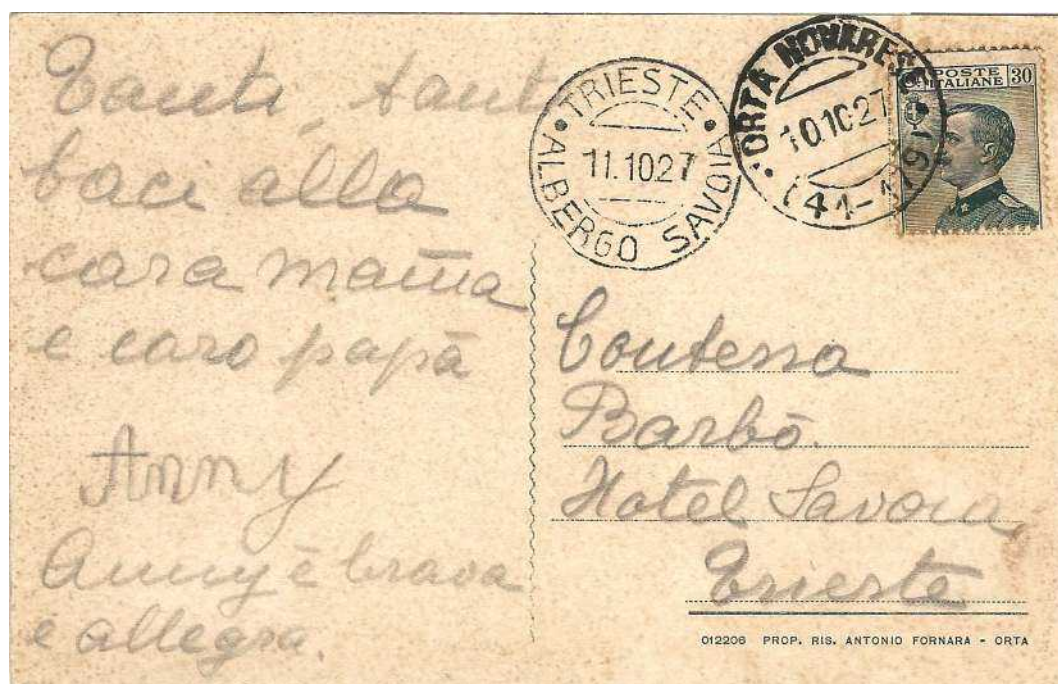 Tanti, tanti
baci alla
cara mam̄a
e caro papà
Anny
Anny è brava
e allegra.
TRIESTE
11.10.27
ALBERGO SAVOIA
ORTA NOVARESE
10.10.27
POSTE
ITALIANE
30
Contessa
Barbò.
Hotel Savoia
Trieste
012206 PROP. RIS. ANTONIO FORNARA - ORTA